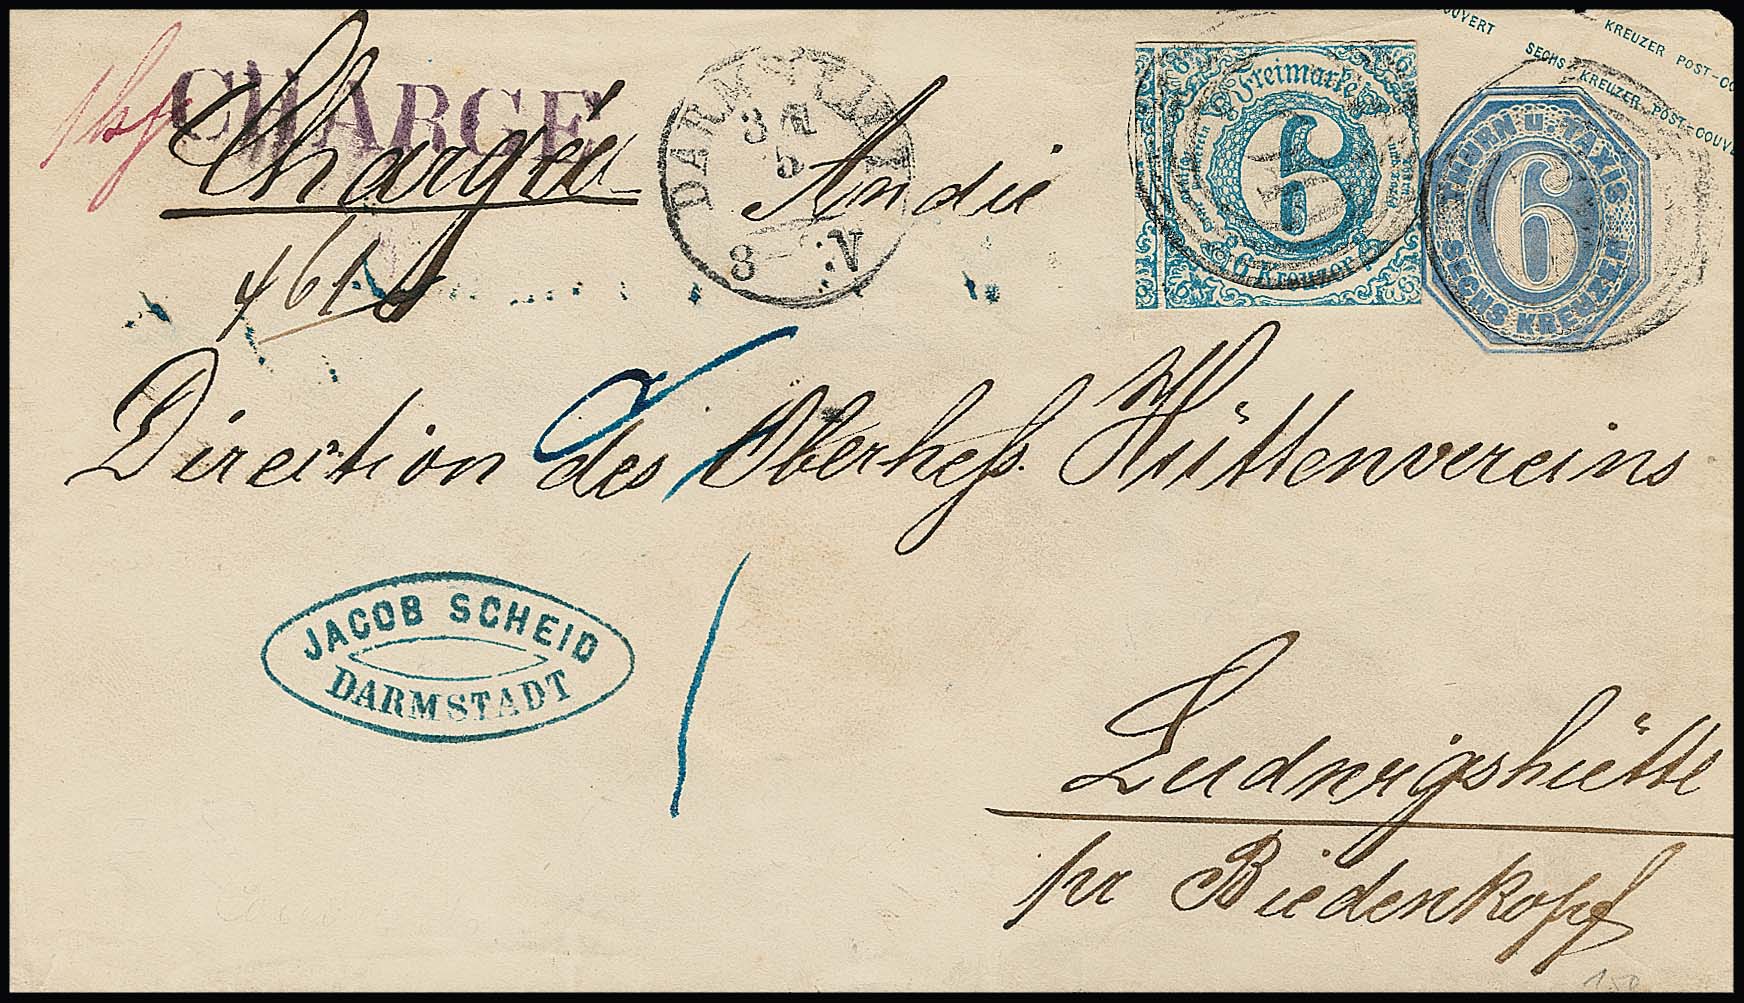 COUVERT KREUZER POST-CO
SECHS KREUZER POST-COUVE
CHARGE
Chargée
DARMSTADT
3
5
8 - V
An die
Freimarke
6
6 Kreuzer
THURN U. TAXIS
6
SECHS KREUZER
461
Direction des Oberhess. Hüttenvereins
JACOB SCHEID
DARMSTADT
Ludwigshütte
pr Biedenkopf